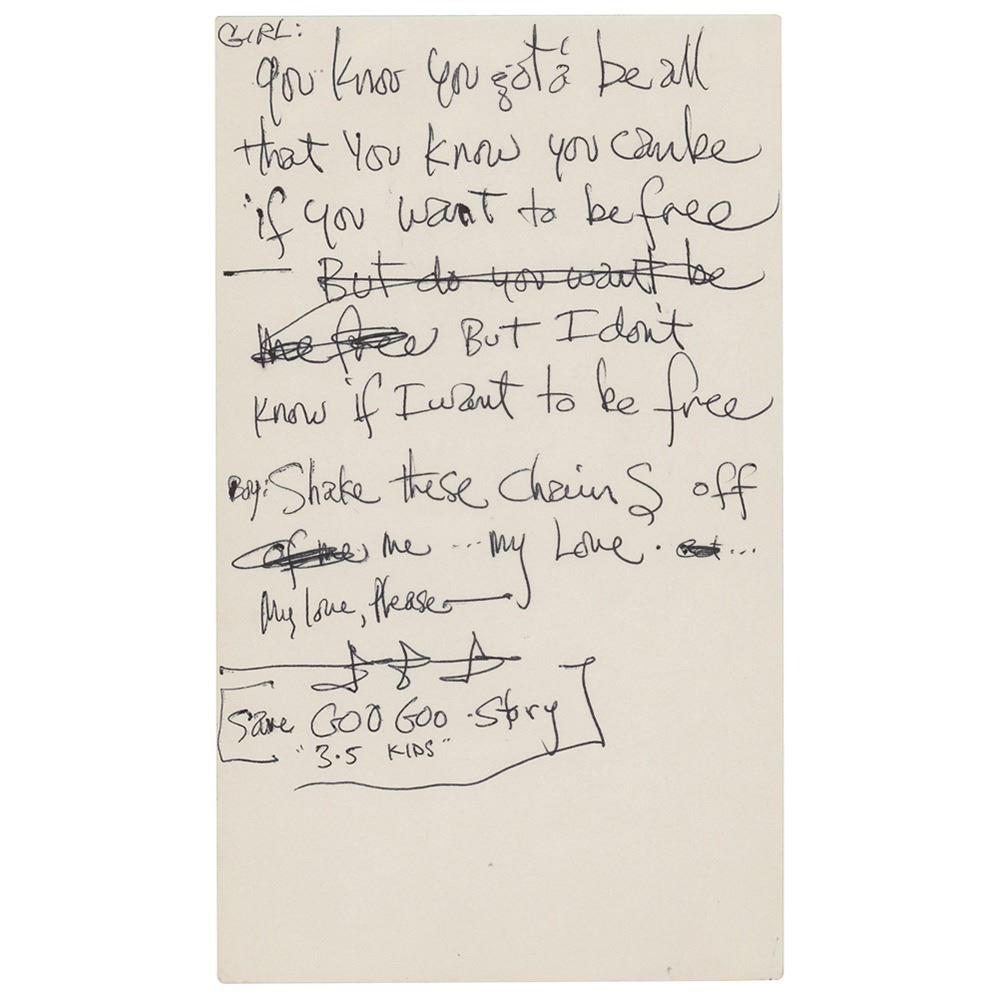 GIRL:
You know you gotta be all
that you know you can be
if you want to be free
But do you want be
me free But I don't
know if I want to be free
Boy: Shake these chains off
of me me ... my love. But ...
My love, Please
Save GOO GOO Story
"3.5 KIDS"